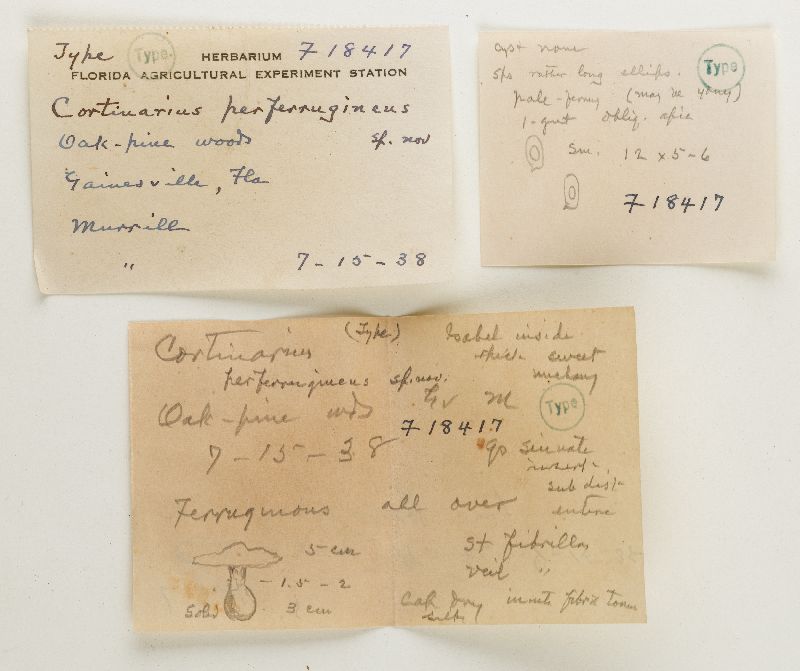 Type Type. HERBARIUM F18417
FLORIDA AGRICULTURAL EXPERIMENT STATION
Cortinarius perferrugineus
Oak-pine woods sp. nov
Gainesville, Fla
Murrill
" 7-15-38
cyst none
Type
sps rather long ellips.
pale-ferrug (may be young)
1-gut obliq. apic
Sm. 12 x 5-6
F18417
Cortinarius (Type)
perferrugineus sp. nov.
Oak-pine wds
7-15-38
Ferruginous all over
5 cm
1.5-2
Solid 3 cm
Isabel inside
thick sweet
Gv M
Type
F18417
sinuate
insert
sub dist
entire
St fibrillos
veil "
Cap dry innate fibril